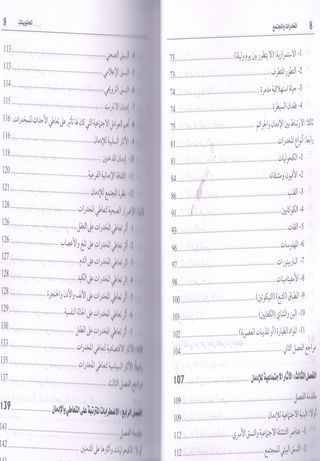 8 المخدرات والمجتمع
1- الاستمرارية: (لا يتطور بين يوم وليلة) 73
2- التطور المتطرف 73
3- حياة استهلاكية مدمرة 74
4- فقدان السيطرة 74
ثالثا: الارتباط بين الإدمان والجرائم 75
رابعا: أنواع المخدرات
1- الكحوليات 81
2- الأفيون ومشتقاته 84
3- القنب 86
4- الكوكايين 91
5- القات 93
6- المهلوسات 95
7- الباربيتورات 97
8- الأمفيتامينات 98
9- الطباق (التبغ) (النيكوتين) 100
10- البن والشاي (الكافيين) 102
11- المواد الطيارة (أو المذيبات العضوية) 102
مراجع الفصل الثاني 104
الفصل الثالث: الآثار الاجتماعية للإدمان 107
مقدمة الفصل
أولا: البيئة الاجتماعية للإدمان
1- عناصر التنشئة الاجتماعية والنسق الأسري 112
2- النسق البيئي للمجتمع 112
المحتويات 9
4- النسق الصحي 113
5- النسق الإعلامي 113
6- النسق الترويحي 114
7- إدمان الانترنت 115
8- أهم العوامل الاجتماعية التي كان لها تأثير على تعاطي الأحداث للمخدرات 116
9- الآثار السلبية للإدمان 116
10- إدمان المدخنين 118
11- الثقافة الإدمانية الفرعية 120
12- نظرة المجتمع للإدمان 121
ثانيا: الأضرار الصحية لتعاطي المخدرات
1- أثر تعاطي المخدرات على العقل 126
2- أثر تعاطي المخدرات على المخ والأعصاب 126
3- أثر تعاطي المخدرات على الدم 127
4- أثر تعاطي المخدرات على الكبد
5- أثر تعاطي المخدرات على الأنف والأذن والحنجرة
6- أثر تعاطي المخدرات على الحالة النفسية
7- أثر تعاطي المخدرات على الطفل
ثالثا: الآثار الاقتصادية لتعاطي المخدرات
رابعا: الآثار السياسية لتعاطي المخدرات 135
مراجع الفصل الثالث 137
الفصل الرابع: الاضطرابات المترتبة على التعاطي والإدمان 139
مقدمة الفصل
أولا: الكحوليات وآثارها على المدمنين 142